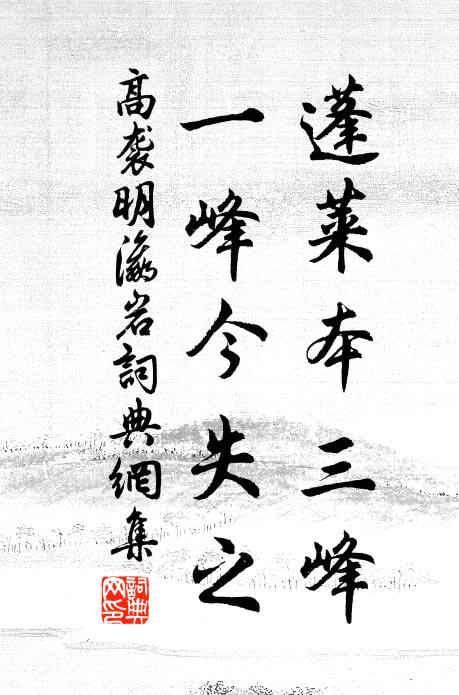 蓬萊本三峰
一峰今失之
高袭明瀛岩詞典網集
詞典網印